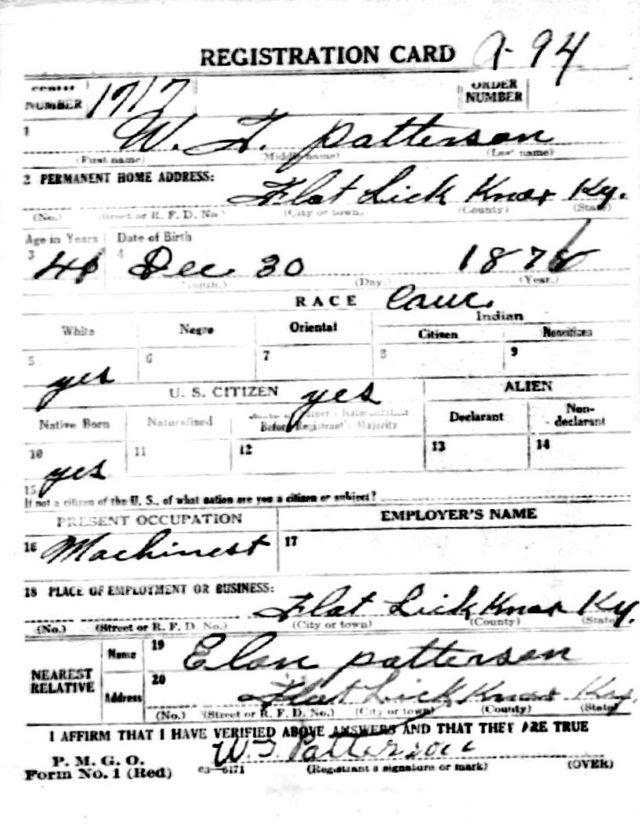 REGISTRATION CARD A-94
SERIAL NUMBER 1717 ORDER NUMBER
1 W. T. Patterson
(First name) (Middle name) (Last name)
2 PERMANENT HOME ADDRESS: Flat Lick Knox Ky.
(No.) (Street or R. F. D. No.) (City or town) (County) (State)
Age in Years Date of Birth
3 4 Dec 30 187
(Month.) (Day.) (Year.)
RACE Cauc.
White Negro Oriental Indian
Citizen Noncitizen
5 yes 6 7 8 9
U. S. CITIZEN yes ALIEN
Native Born Naturalized Before Registrant's Majority Declarant Non-declarant
10 yes 11 12 13 14
15
If not a citizen of the U. S., of what nation are you a citizen or subject?
PRESENT OCCUPATION EMPLOYER'S NAME
16 Machinest 17
18 PLACE OF EMPLOYMENT OR BUSINESS:
Flat Lick Knox Ky.
(No.) (Street or R. F. D. No.) (City or town) (County) (State)
NEAREST RELATIVE Name 19 Patterson
Address 20 Flat Lick Knox Ky.
(No.) (Street or R. F. D. No.) (City or town) (County) (State)
I AFFIRM THAT I HAVE VERIFIED ABOVE ANSWERS AND THAT THEY ARE TRUE
P. M. G. O. W T Patterson
Form No. 1 (Red) 03—6171 (Registrant's signature or mark) (OVER)